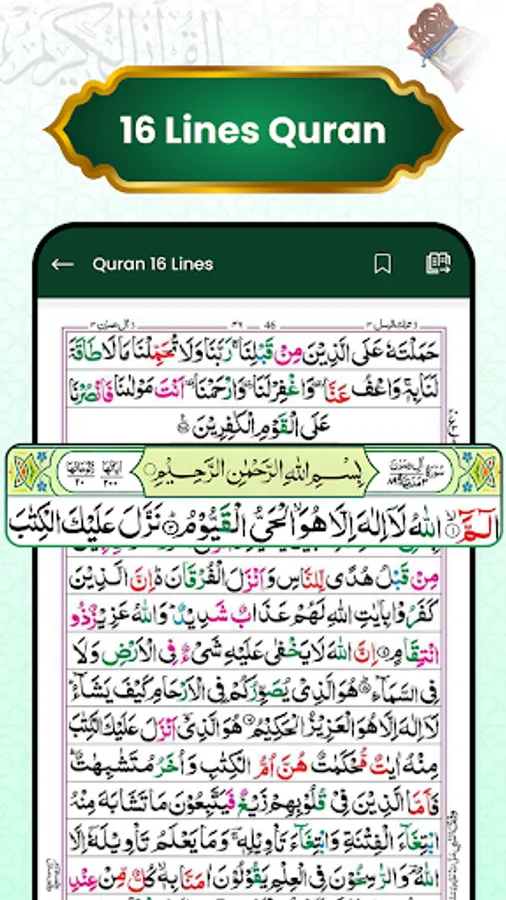 القرآن الكريم
16 Lines Quran
Quran 16 Lines
٣٧ 46
حَمَلْتَهٗ عَلَى الَّذِیْنَ مِنْ قَبْلِنَا ۚ رَبَّنَا وَلَا تُحَمِّلْنَا مَا لَا طَاقَةَ
لَنَا بِهٖ ۚ وَاعْفُ عَنَّا ۥ وَاغْفِرْ لَنَا ۥ وَارْحَمْنَا ۥ اَنْتَ مَوْلٰىنَا فَانْصُرْنَا
عَلَى الْقَوْمِ الْكٰفِرِیْنَ
بِسْمِ اللّٰهِ الرَّحْمٰنِ الرَّحِیْمِ
الٓمّٓ ۙ اللّٰهُ لَاۤ اِلٰهَ اِلَّا هُوَ ۙ الْحَیُّ الْقَیُّوْمُ ؕ نَزَّلَ عَلَیْكَ الْكِتٰبَ
مِنْ قَبْلُ هُدًی لِّلنَّاسِ وَاَنْزَلَ الْفُرْقَانَ ۬ اِنَّ الَّذِیْنَ
كَفَرُوْا بِاٰیٰتِ اللّٰهِ لَهُمْ عَذَابٌ شَدِیْدٌ ؕ وَاللّٰهُ عَزِیْزٌ ذُو
انْتِقَامٍ ؕ اِنَّ اللّٰهَ لَا یَخْفٰی عَلَیْهِ شَیْءٌ فِی الْاَرْضِ وَلَا
فِی السَّمَآءِ ؕ هُوَ الَّذِیْ یُصَوِّرُكُمْ فِی الْاَرْحَامِ كَیْفَ یَشَآءُ ؕ
لَاۤ اِلٰهَ اِلَّا هُوَ الْعَزِیْزُ الْحَكِیْمُ هُوَ الَّذِیْۤ اَنْزَلَ عَلَیْكَ الْكِتٰبَ
مِنْهُ اٰیٰتٌ مُّحْكَمٰتٌ هُنَّ اُمُّ الْكِتٰبِ وَاُخَرُ مُتَشٰبِهٰتٌ ؕ
فَاَمَّا الَّذِیْنَ فِیْ قُلُوْبِهِمْ زَیْغٌ فَیَتَّبِعُوْنَ مَا تَشَابَهَ مِنْهُ
ابْتِغَآءَ الْفِتْنَةِ وَابْتِغَآءَ تَاْوِیْلِهٖ ؔ وَمَا یَعْلَمُ تَاْوِیْلَهٗۤ اِلَّا
اللّٰهُ ؔ وَالرّٰسِخُوْنَ فِی الْعِلْمِ یَقُوْلُوْنَ اٰمَنَّا بِهٖ ۙ كُلٌّ مِّنْ عِنْدِ